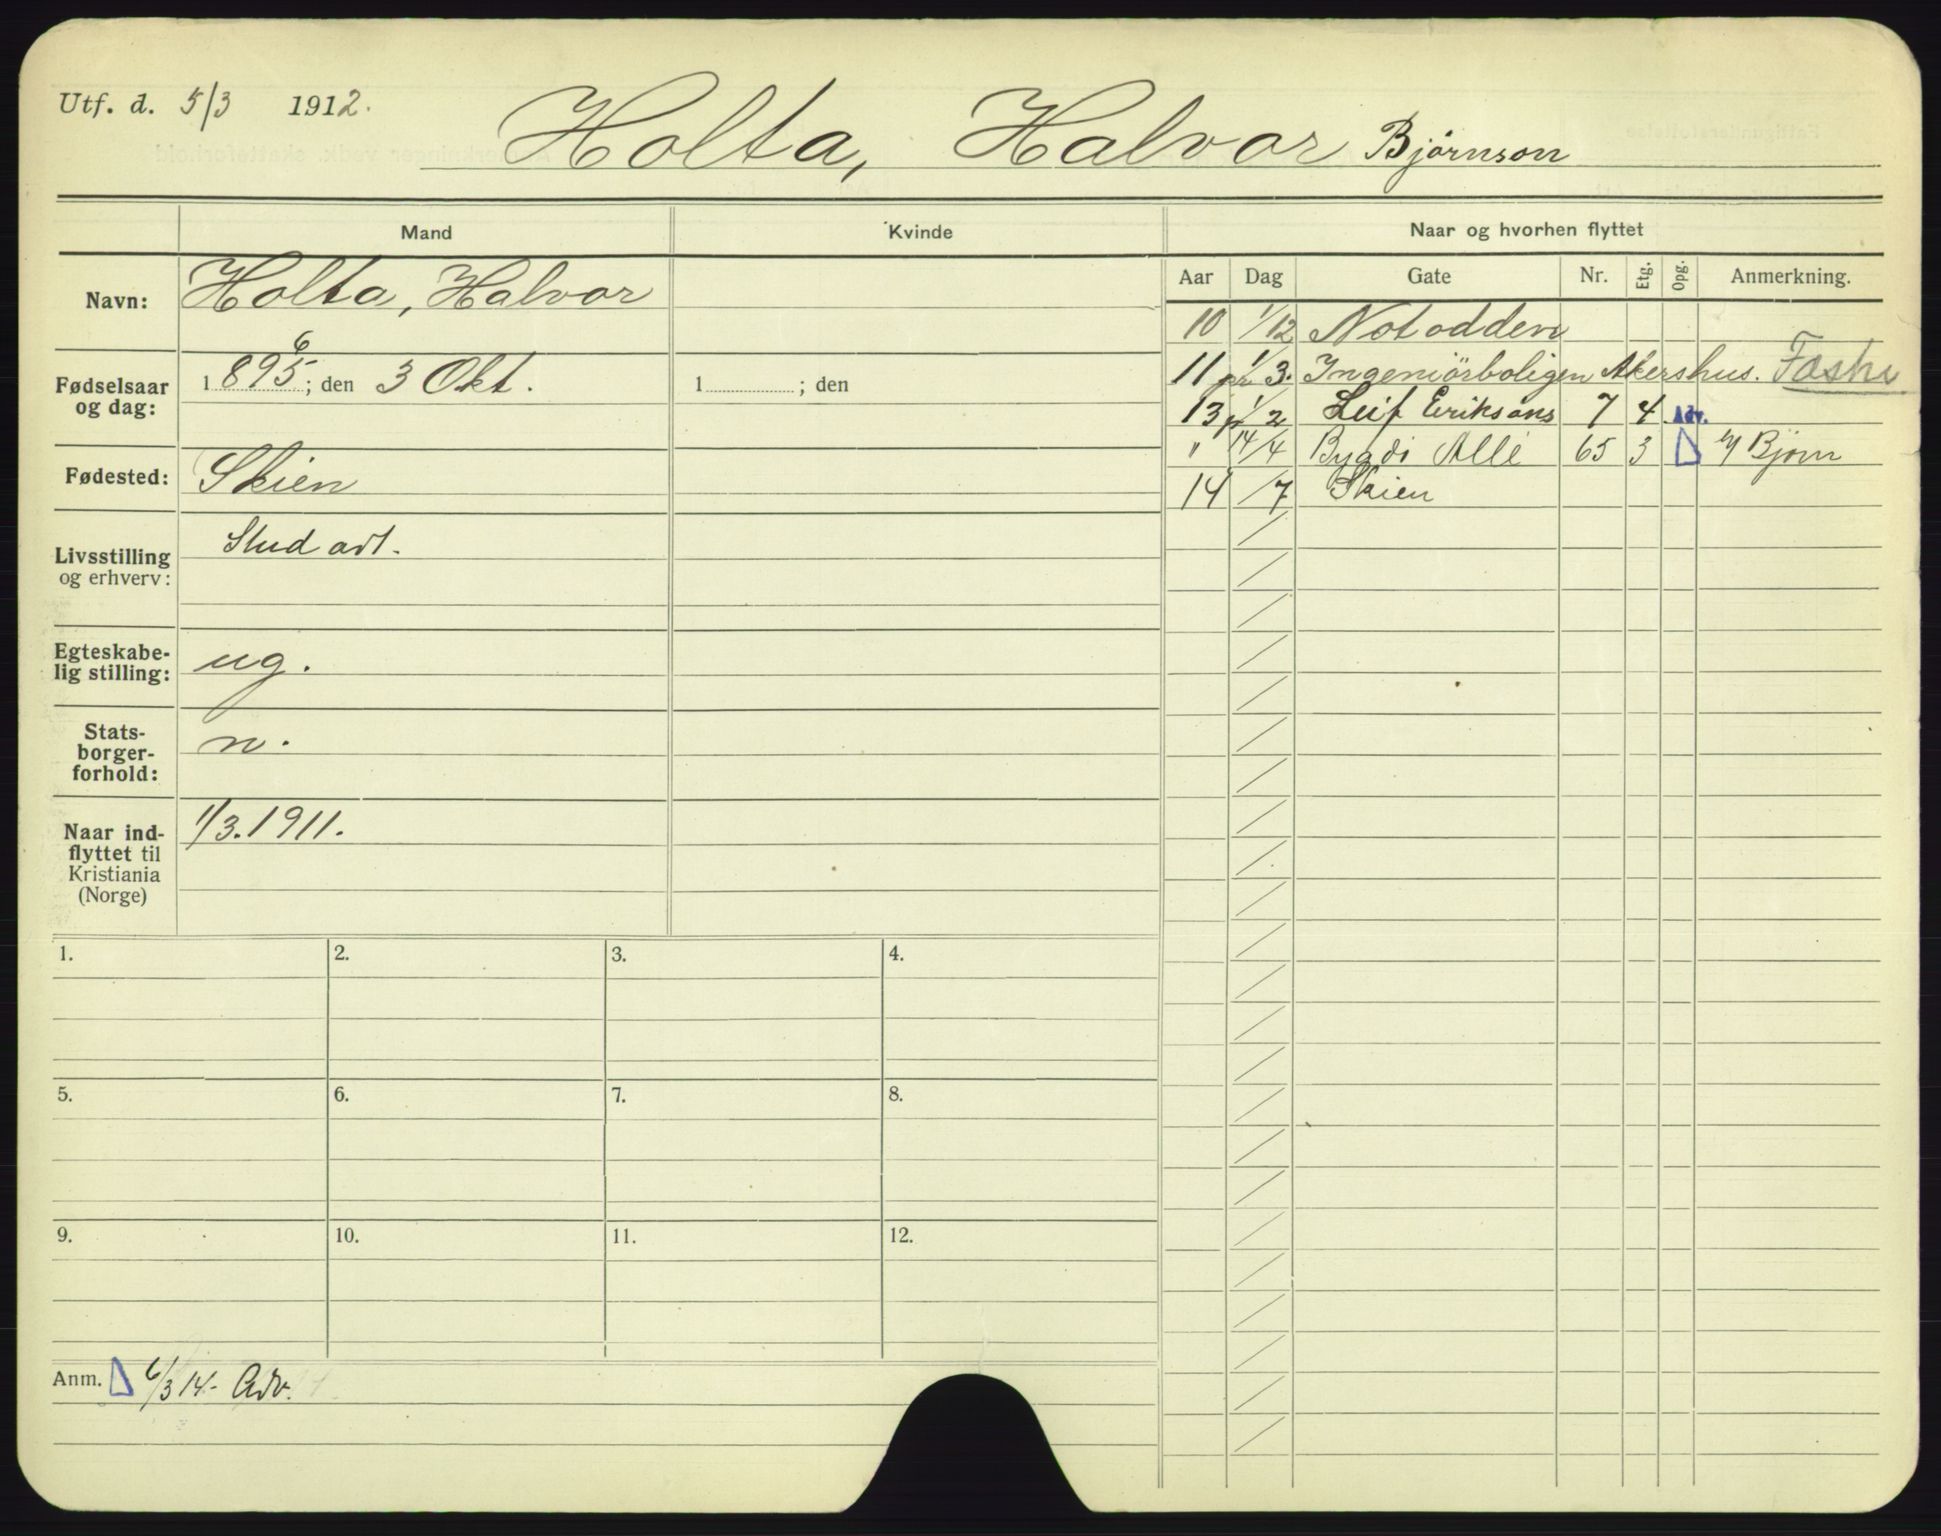 Utf. d. 5/3 1912.
Holta, Halvor Bjørnson
Mand Kvinde Naar og hvorhen flyttet
Aar Dag Gate Nr. Etg. Opg. Anmerkning.
Navn: Holta, Halvor
Fødselsaar og dag: 1 895 6 ; den 3 Okt. 1 ; den
Fødested: Skien
Livsstilling og erhverv: Stud art.
Egteskabe-
lig stilling: ug.
Stats-
borger-
forhold: n.
Naar ind-
flyttet til
Kristiania
(Norge) 1/3.1911.
10 1/12 Notodden
11 pr 1/3. Ingeniörboligen Akershus.
13 1/2 Leif Eriksons 7 4 Adv.
" 14/4 Bygdö Allé 65 3 Bjørn
14 /7 Skien
1. 2. 3. 4.
5. 6. 7. 8.
9. 10. 11. 12.
Anm. 6/3 14- Adv.